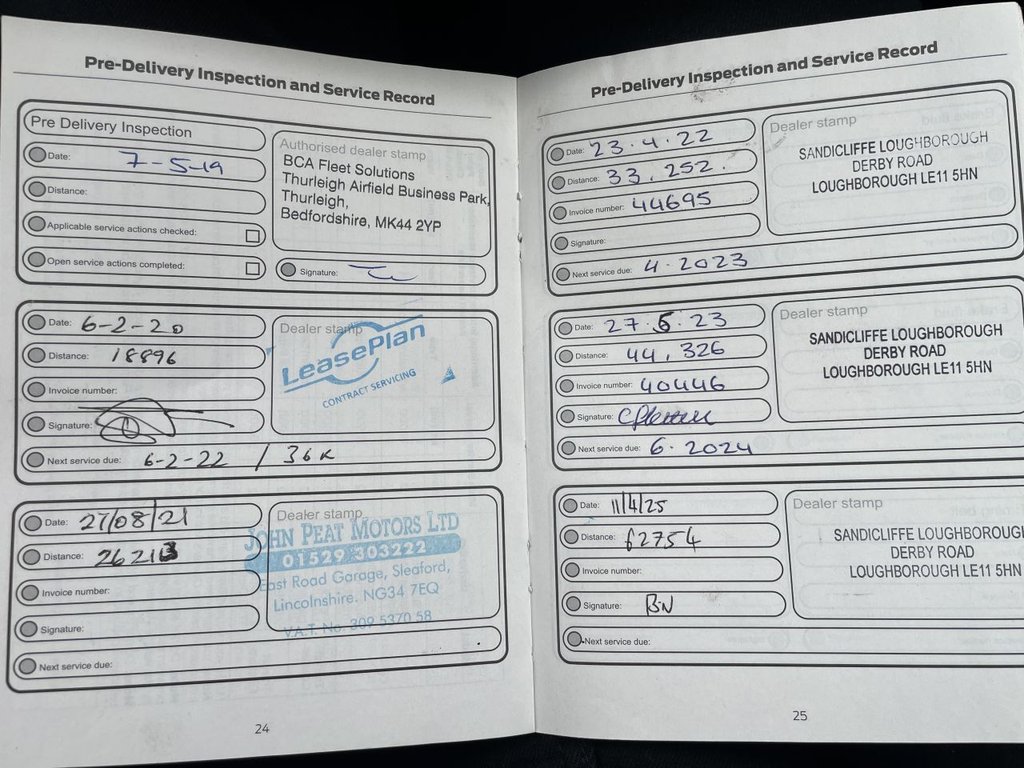 Pre-Delivery Inspection and Service Record
Pre Delivery Inspection
Date: 7-5-19
Distance:
Applicable service actions checked:
Open service actions completed:
Authorised dealer stamp
BCA Fleet Solutions
Thurleigh Airfield Business Park,
Thurleigh,
Bedfordshire, MK44 2YP
Signature:
Date: 6-2-20
Distance: 18896
Invoice number:
Signature:
Next service due: 6-2-22 / 36K
Dealer stamp
LeasePlan
CONTRACT SERVICING
Date: 27/08/21
Distance: 26213
Invoice number:
Signature:
Next service due:
Dealer stamp
JOHN PEAT MOTORS LTD
01529 303222
East Road Garage, Sleaford,
Lincolnshire. NG34 7EQ
V.A.T. No. 309 5370 58
24
Pre-Delivery Inspection and Service Record
Date: 23.4.22
Distance: 33,252.
Invoice number: 44695
Signature:
Next service due: 4.2023
Dealer stamp
SANDICLIFFE LOUGHBOROUGH
DERBY ROAD
LOUGHBOROUGH LE11 5HN
Date: 27.6.23
Distance: 44,326
Invoice number: 40446
Signature:
Next service due: 6.2024
Dealer stamp
SANDICLIFFE LOUGHBOROUGH
DERBY ROAD
LOUGHBOROUGH LE11 5HN
Date: 11/4/25
Distance: 62754
Invoice number:
Signature: BN
Next service due:
Dealer stamp
SANDICLIFFE LOUGHBOROUG
DERBY ROAD
LOUGHBOROUGH LE11 5HN
25